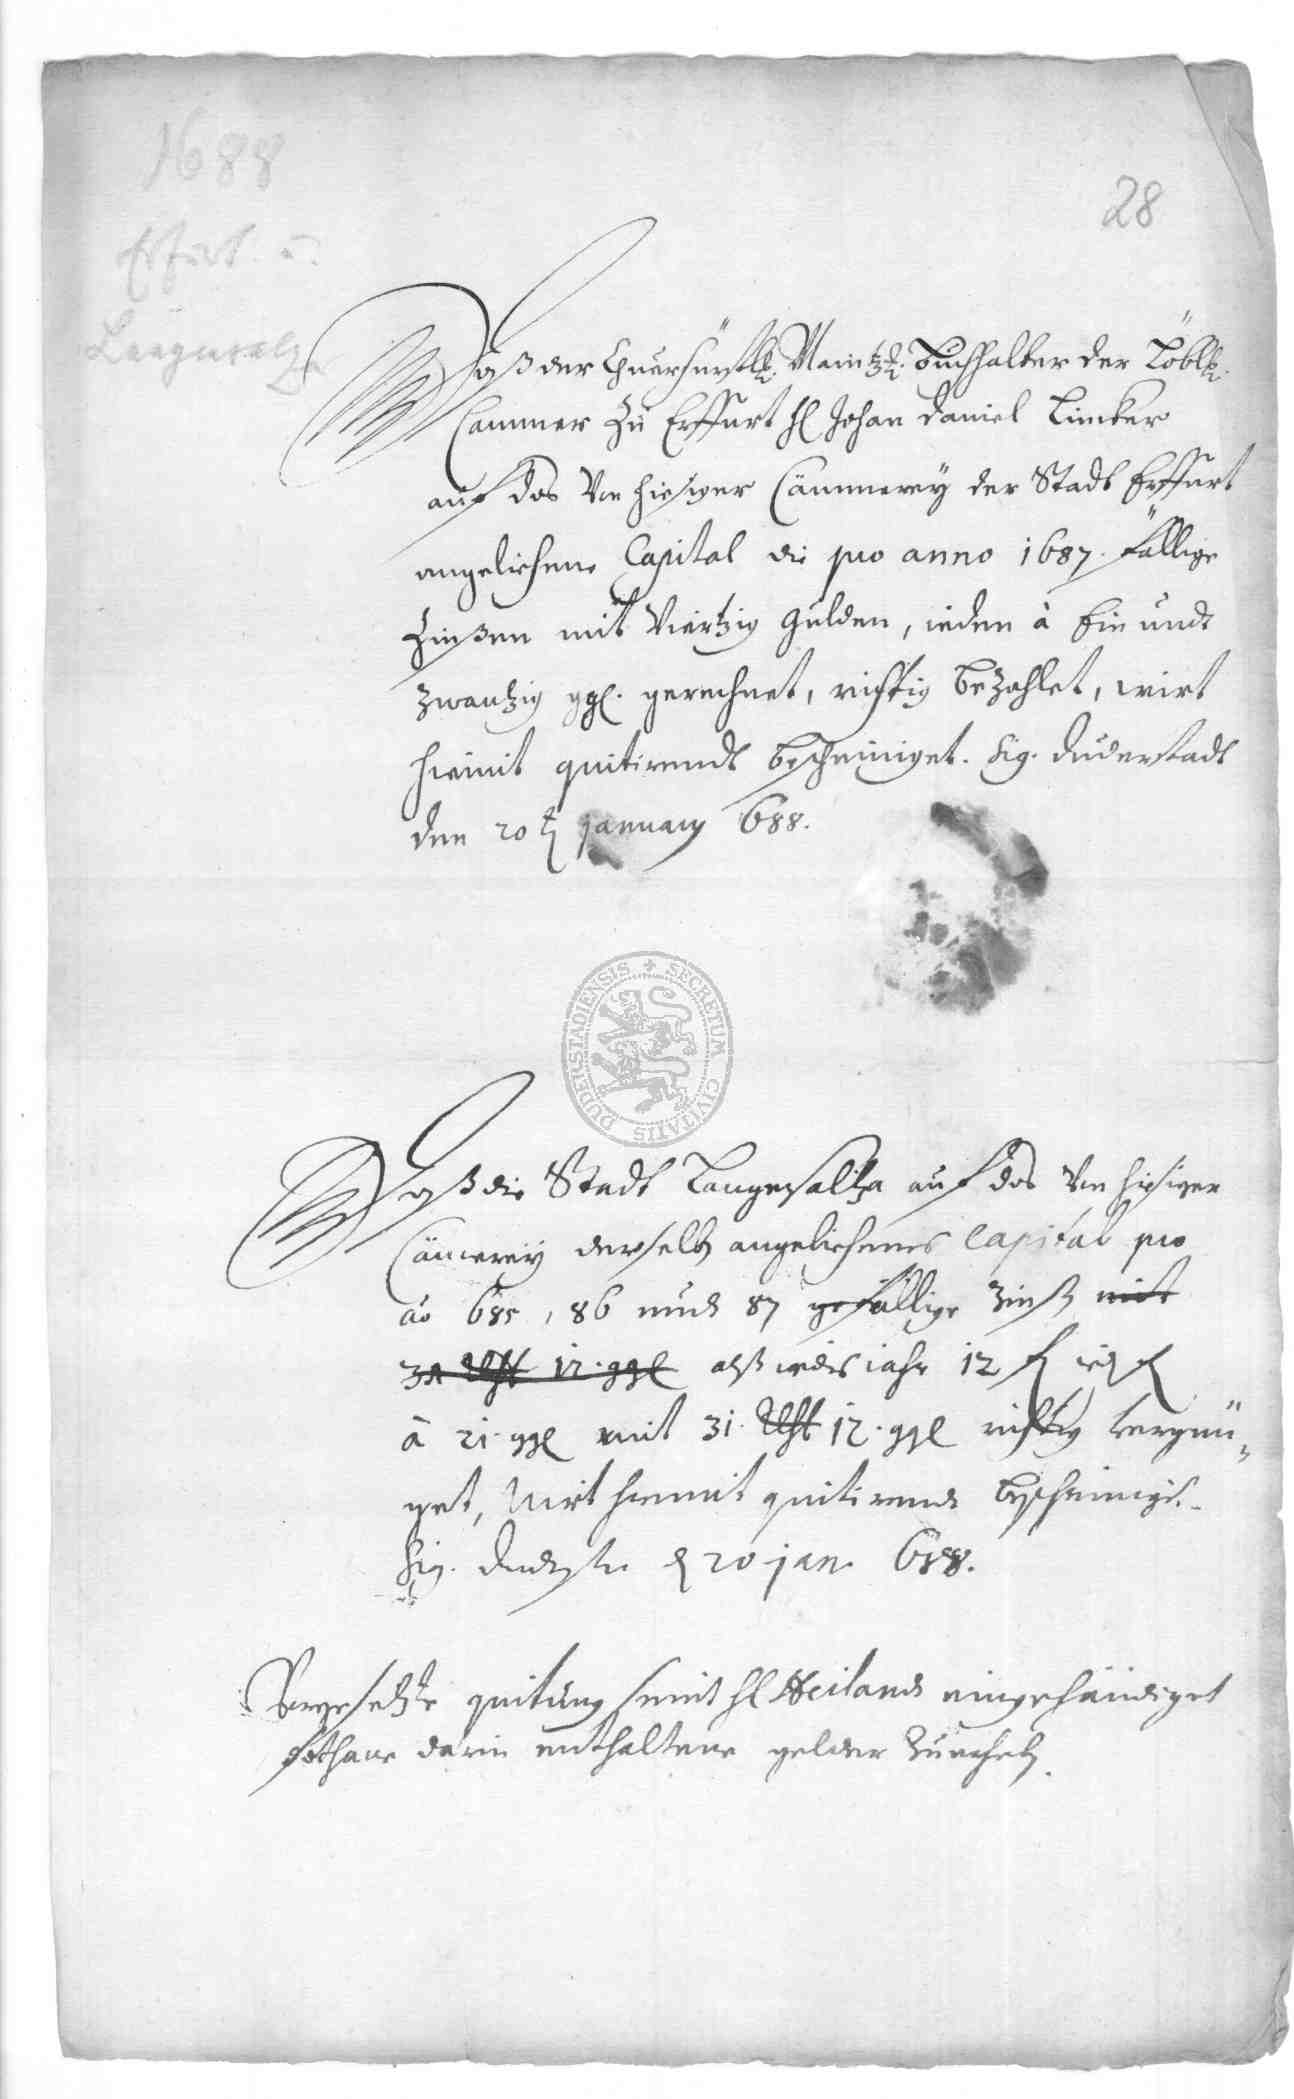 1688
28
Erfurt u.
Langensalza
Daß der Churfürstl. Maintz. Buchhalter der Löbl.
Cammer Zu Erffurt H Johan Daniel Lincker
auf das Von hiesiger Cämmerey der Stadt Erffurt
angeliehene Capital die pro anno 1687. fällige
Zinßen mit Viertzig Gulden, ieden à Ein undt
Zwantzig ggl. gerechnet, richtig bezahlet, wirt
hiemit quitirendt bescheiniget. Sig. Duderstadt
den 20 t. January 688.
SECRETUM CIVITATIS DUDERSTADIENSIS
Daß die Stadt Langensaltza auf das Von hiesiger
Cämerey derselb angeliehenes Capital pro
ao 685, 86 und 87 gefällige Zinß mit
31 Rthl 12. ggl alß iedes iahr 12 fl ied fl
à 21. ggl mit 31. Rthl 12. ggl richtig vergnü-
get, Wirt hiemit quitirend bescheinigt.
Sig. Duderst. d 20 jan. 688.
Vorgesetzte quitung seint H Heiland eingehändiget
sothane darin enthaltene gelder Zuerheb.